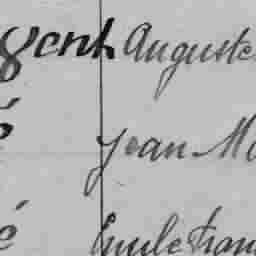 gent Auguste
é Jean Ma
é Emile Fran